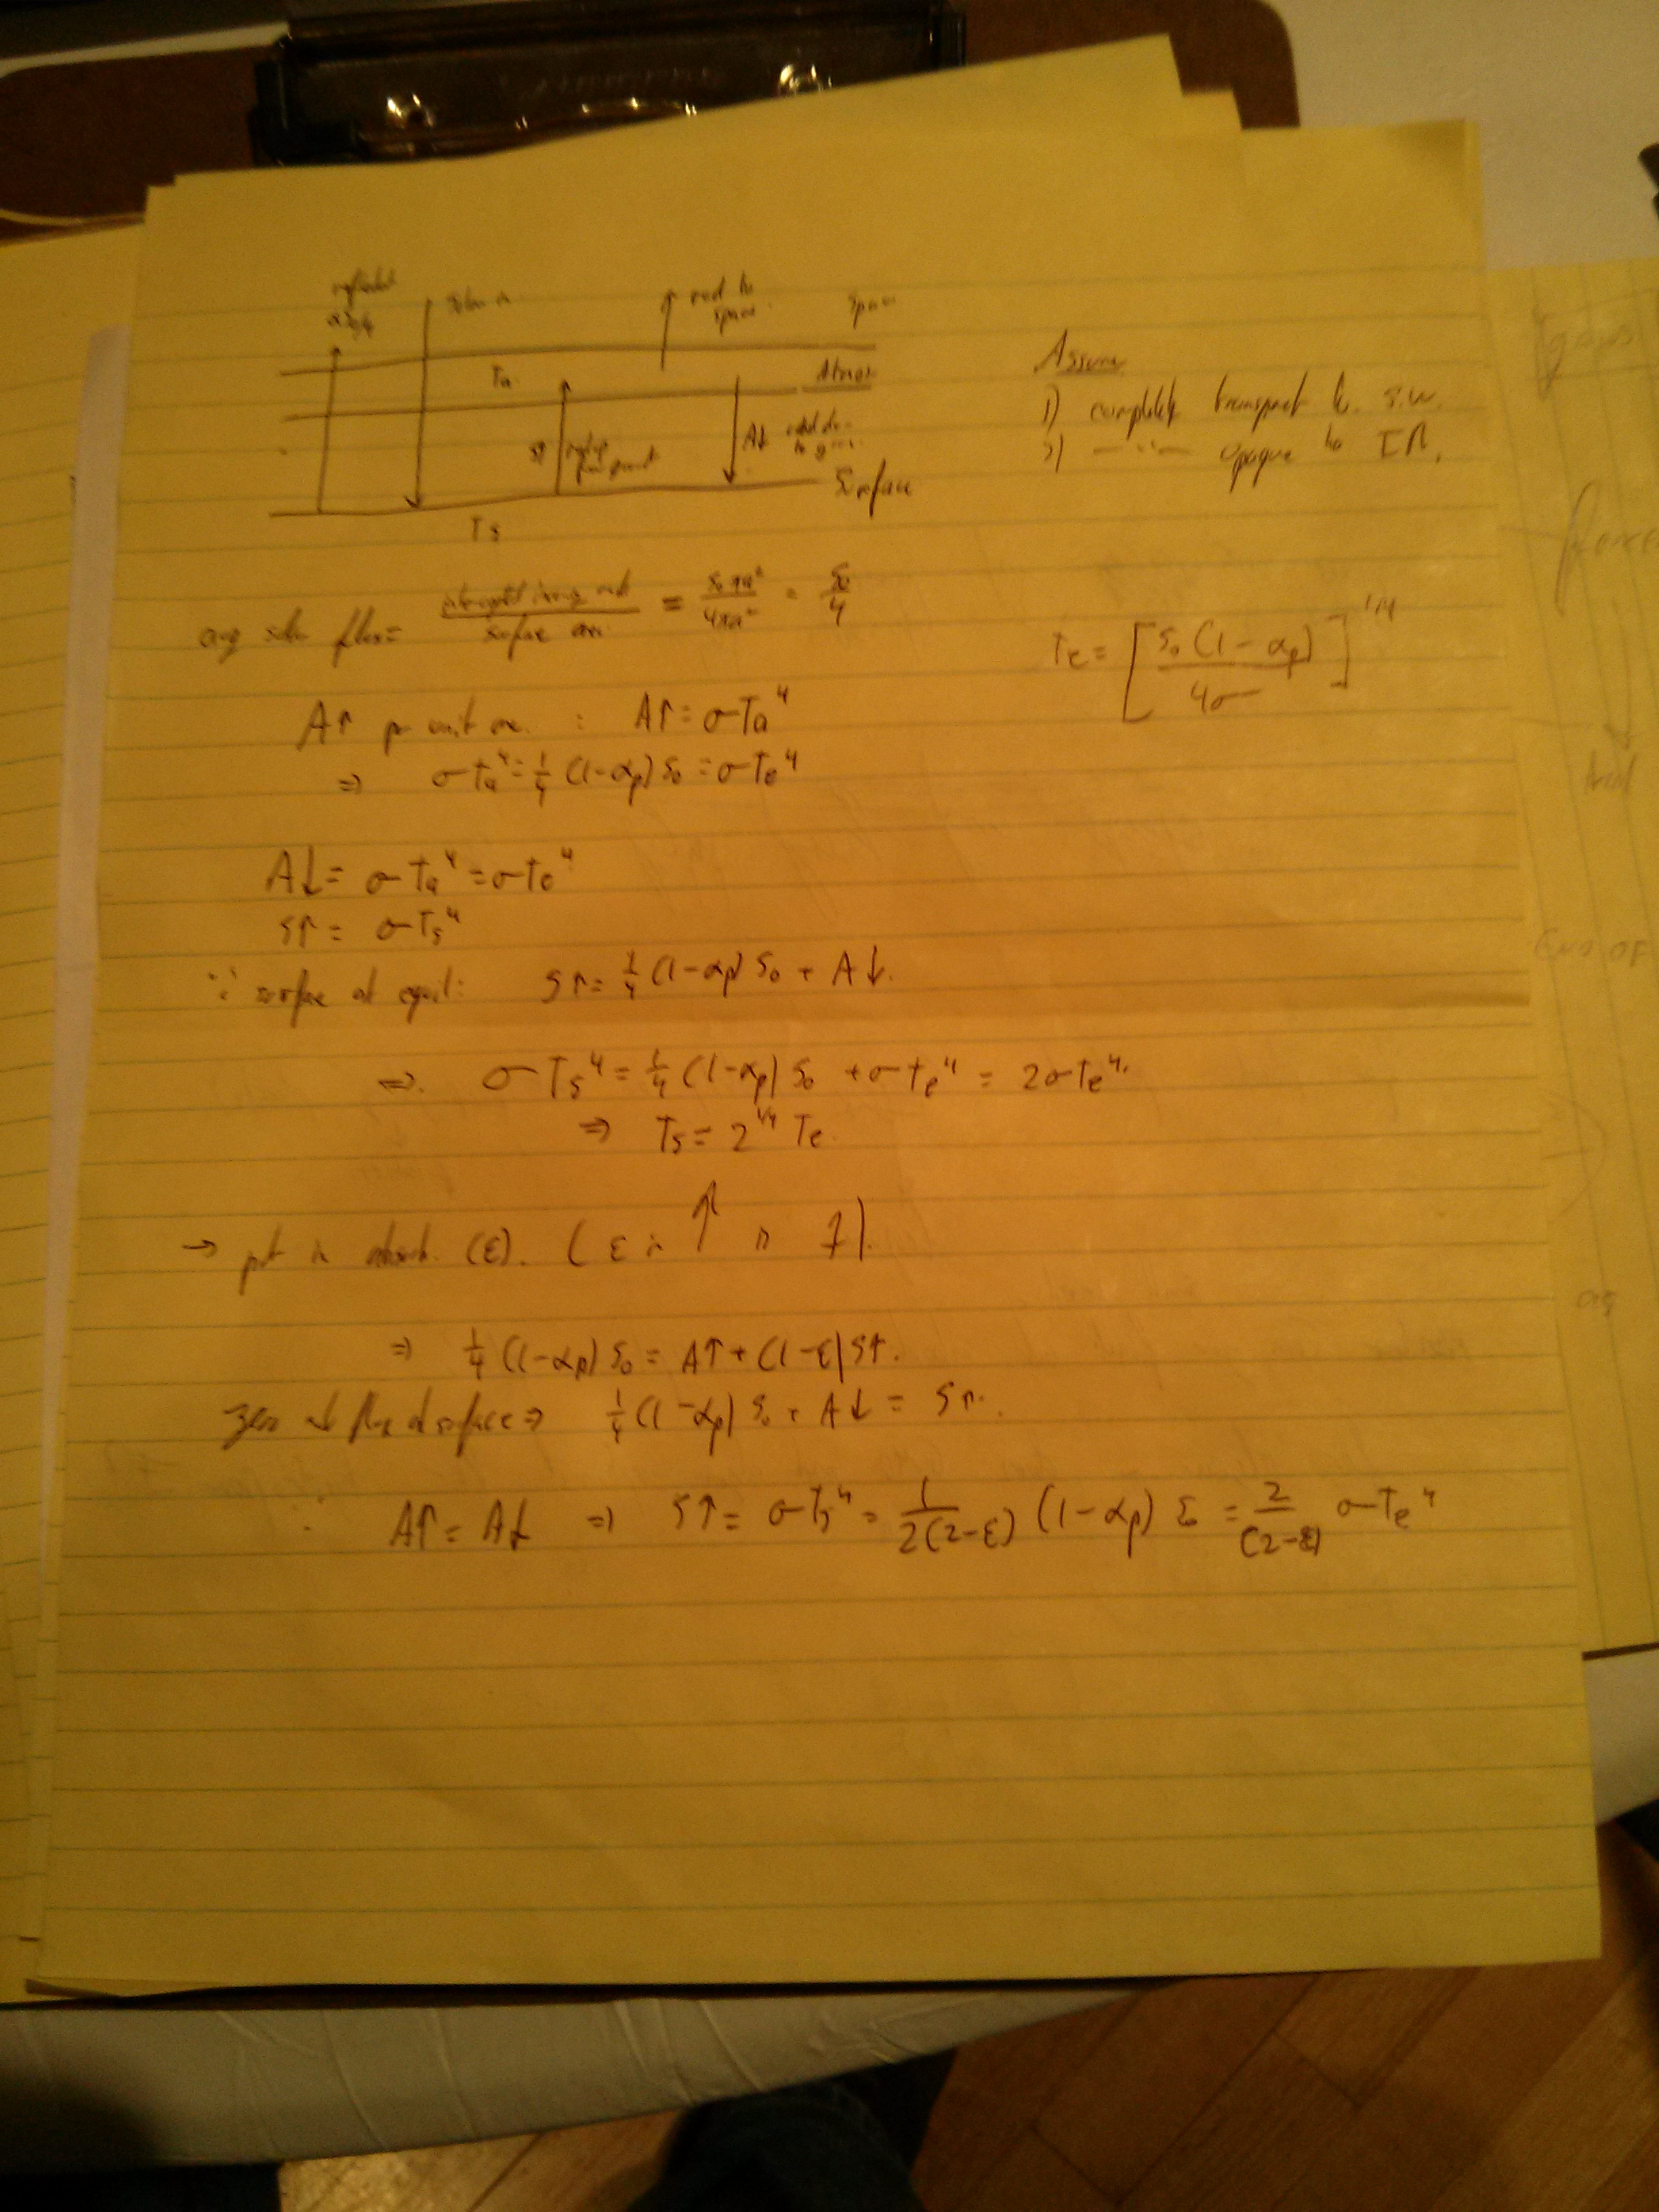 reflected
αS₀/4
Solar in
rad to
space
Space
Ta
Atmos
S↑
A↓
Surface
Ts
Assume
1) complete transpnt to s.w.
2) —"— opaque to IR.
avg solar flux = / surface area = S₀πa² / 4πa² = S₀/4
Te = [S₀(1-αp) / 4σ]^1/4
A↑ per unit area : A↑ = σTa⁴
⇒ σTa⁴ = 1/4 (1-αp) S₀ = σTe⁴
A↓ = σTa⁴ = σTe⁴
S↑ = σTs⁴
∵ surface at equil: S↑ = 1/4 (1-αp) S₀ + A↓.
⇒ σTs⁴ = 1/4 (1-αp) S₀ + σTe⁴ = 2σTe⁴.
⇒ Ts = 2^1/4 Te
→ put in absorb. (ε). (ε in ↑ is 1).
⇒ 1/4 (1-αp) S₀ = A↑ + (1-ε) S↑.
zero net flux at surface ⇒ 1/4 (1-αp) S₀ + A↓ = S↑.
∴ A↑ = A↓ ⇒ S↑ = σTs⁴ = 1/2(2-ε) (1-αp) S₀ = 2/(2-ε) σTe⁴
END OF